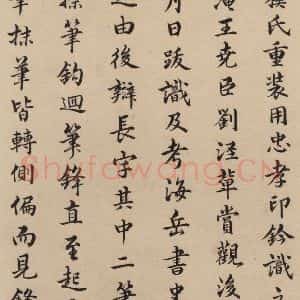 揆氏重裝用忠孝印鈐識
王尭臣劉涇輩賞觀後
月日跋識及考海岳書史
之由後辯長字其中二筆
捺筆鈎迴筆鋒直至起
筆抹筆皆轉側偏而見鋒
Shufawang.CN